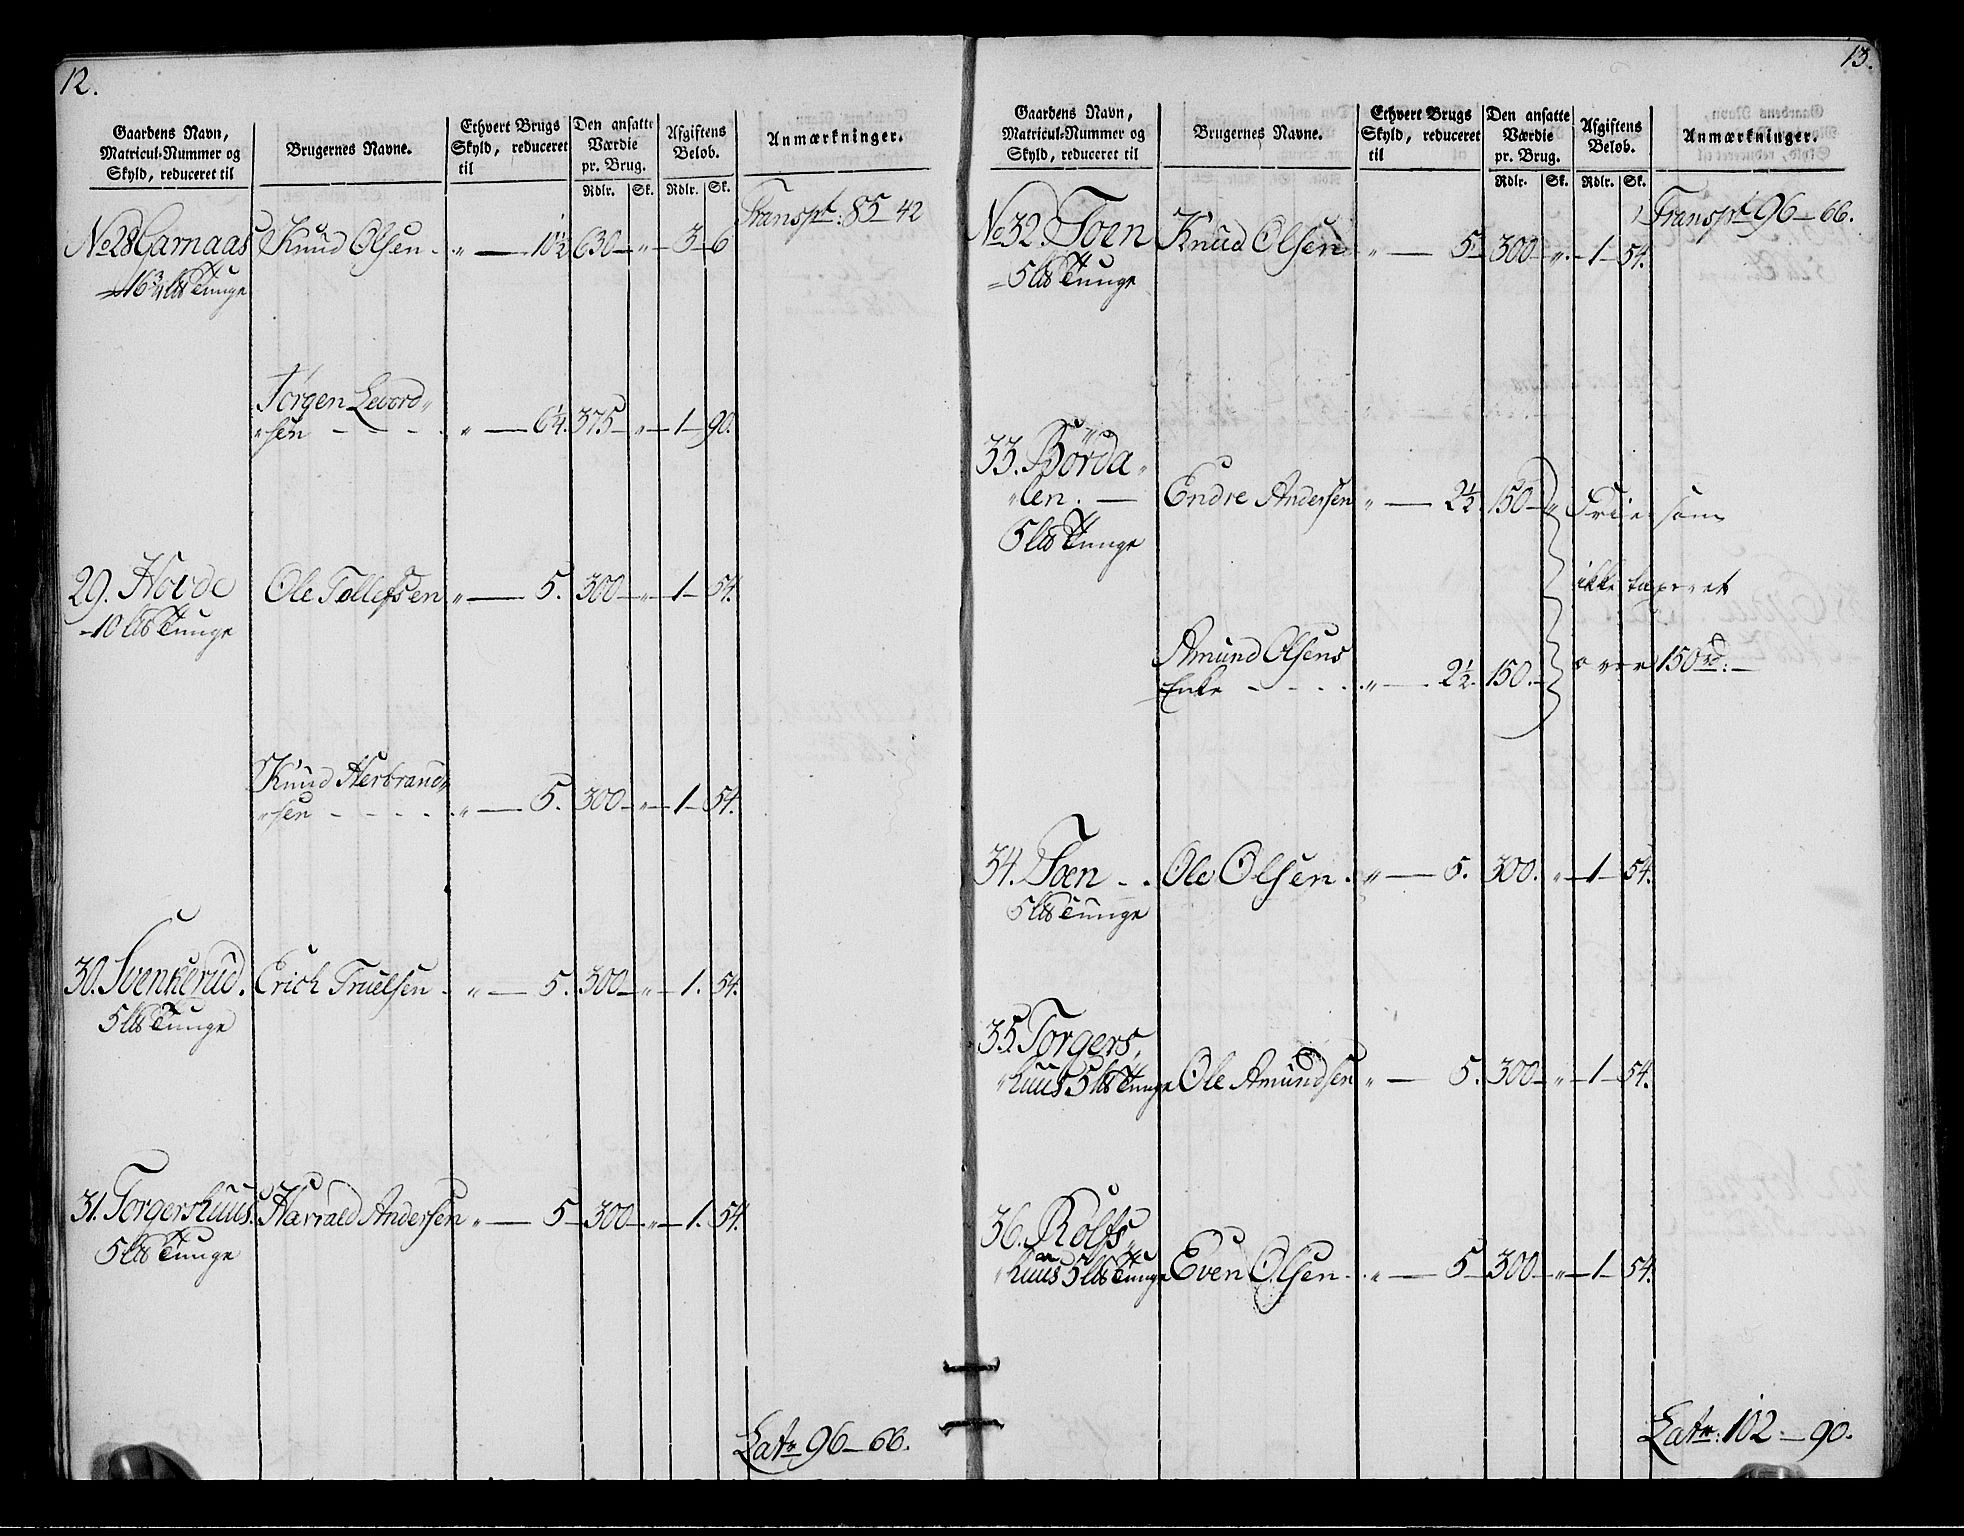 12.
Gaardens Navn, Matricul-Nummer og Skyld, reduceret til
Brugernes Navne.
Ethvert Brugs Skyld, reduceret til
Den ansatte Værdie pr. Brug.
Afgiftens Beløb.
Anmærkninger.
Rdlr. Sk. Rdlr. Sk.
Transpt: 85 — 42
No 28 Garnaas Knud Olsen - „ — 10½ 630 — „ — 3 — 6
16¾ l℔ Tunge
Jørgen Levord„
„sen - - - - „ — 6¼. 375 — „ — 1 — 90.
29. Hovde Ole Tollefsen „ — 5. 300 — „ — 1 — 54.
10 l℔ Tunge
Knud Herbrand„
„sen - - - - „ — 5. 300 — „ — 1 — 54.
30. Svenkerud. Erich Truelsen - „ — 5. 300 — „ — 1. 54.
5 l℔ Tunge
31. Torgershuus. Harrald Andersen „ — 5 — 300 — „ — 1. 54.
5 l℔ Tunge
Latr 96 — 66.
13.
Gaardens Navn, Matricul-Nummer og Skyld, reduceret til
Brugernes Navne.
Ethvert Brugs Skyld, reduceret til
Den ansatte Værdie pr. Brug.
Afgiftens Beløb.
Anmærkninger.
Rdlr. Sk. Rdlr. Sk.
Transpt 96 — 66.
No 32. Toen Knud Olsen „ — 5 — 300 — „ — 1 — 54.
5 l℔ Tunge
33. Børda„
„len. — Endre Andersen „ — 2½. 150 — „ Frie som
5 l℔ Tunge
ikke taxeret
Amund Olsens
Enke - - - - „ — 2½. 150. — over 150 rd. —
34. Toen - . Ole Olsen. „ — 5. 300. „ — 1 — 54.
5 l℔ Tunge
35. Torgers„
„huus 5 l℔ Tunge Ole Amundsen „ — 5. 300 — „ — 1 — 54.
36. Rolfs„
„huus 5 l℔ Tunge Even Olsen - „ — 5 — 300 — „ — 1 — 54.
Latr: 102. — 90.